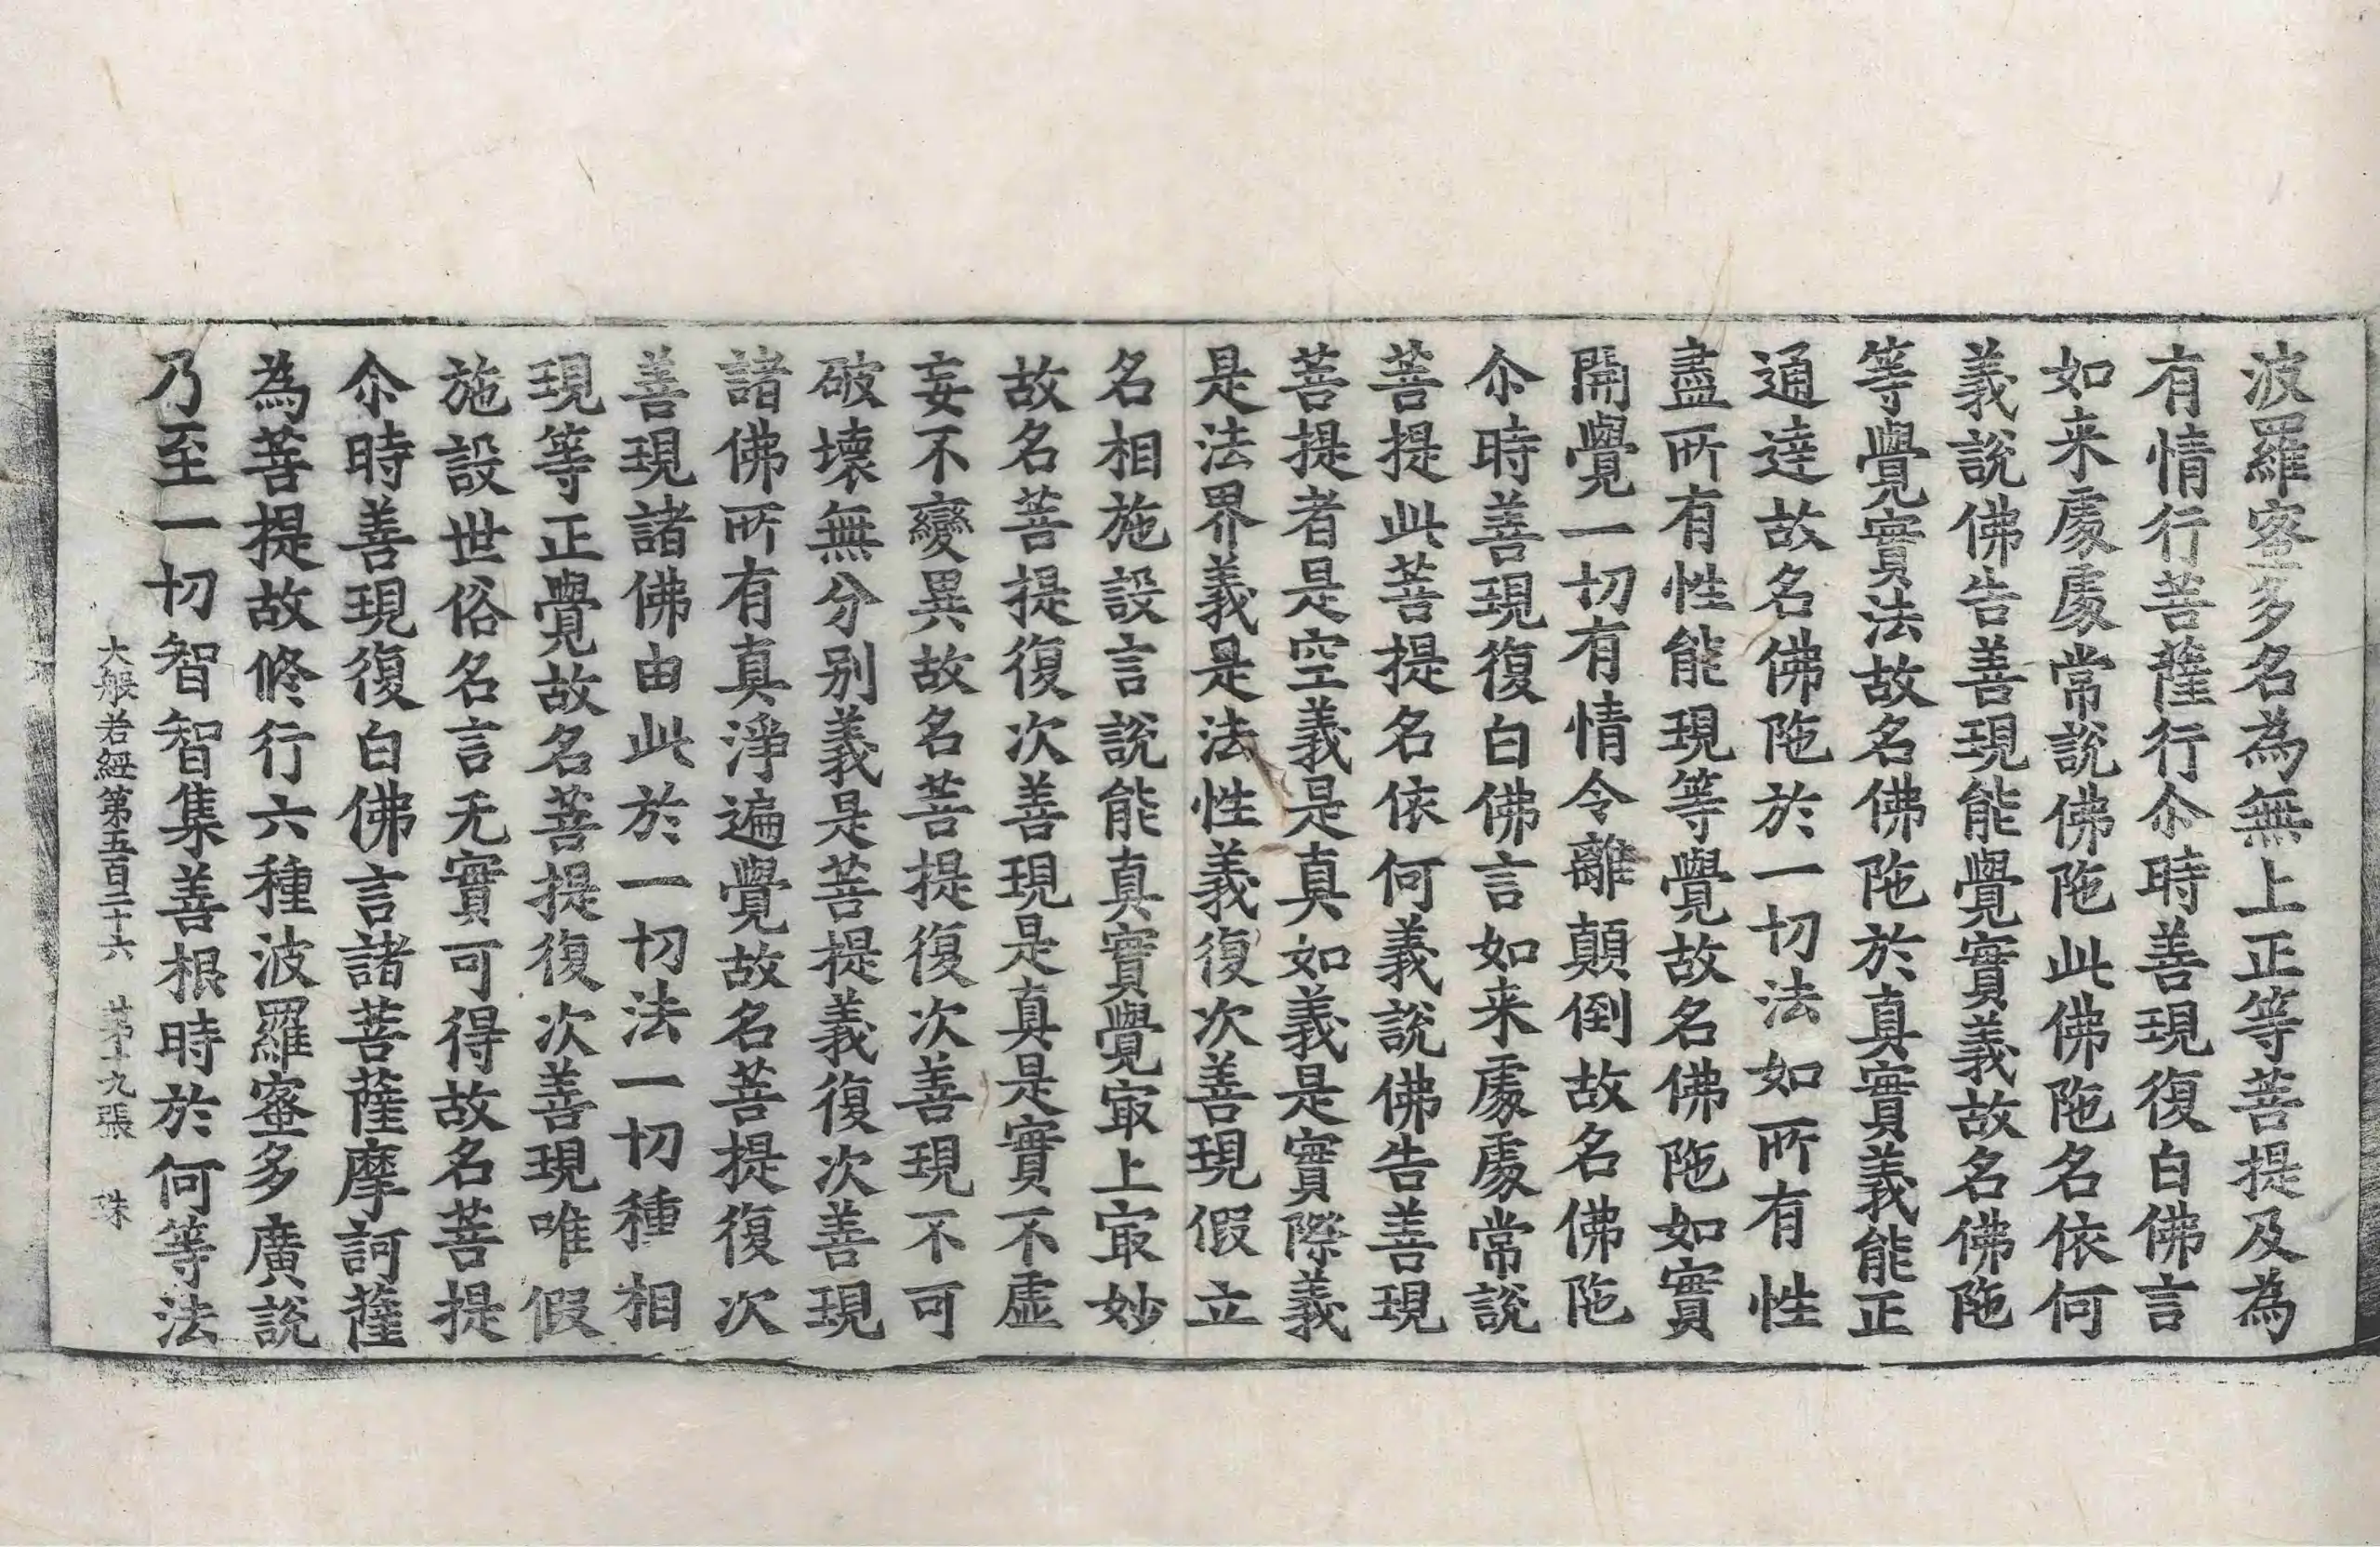 波羅蜜多名為無上正等菩提及為
有情行菩薩行尒時善現復白佛言
如来處處常說佛陁此佛陁名依何
義說佛告善現能覺實義故名佛陁
等覺實法故名佛陁於真實義能正
通達故名佛陁於一切法如所有性
盡所有性能現等覺故名佛陁如實
開覺一切有情令離顛倒故名佛陁
尒時善現復白佛言如来處處常說
菩提此菩提名依何義說佛告善現
菩提者是空義是真如義是實際義
是法界義是法性義復次善現假立
名相施設言說能真實覺㝡上㝡妙
故名菩提復次善現是真是實不虛
妄不變異故名菩提復次善現不可
破壞無分别義是菩提義復次善現
諸佛所有真淨遍覺故名菩提復次
善現諸佛由此於一切法一切種相
現等正覺故名菩提復次善現唯假
施設世俗名言无實可得故名菩提
尒時善現復白佛言諸菩薩摩訶薩
為菩提故修行六種波羅蜜多廣說
乃至一切智智集善根時於何等法
大般若經第五百二十六 第十九張 珠